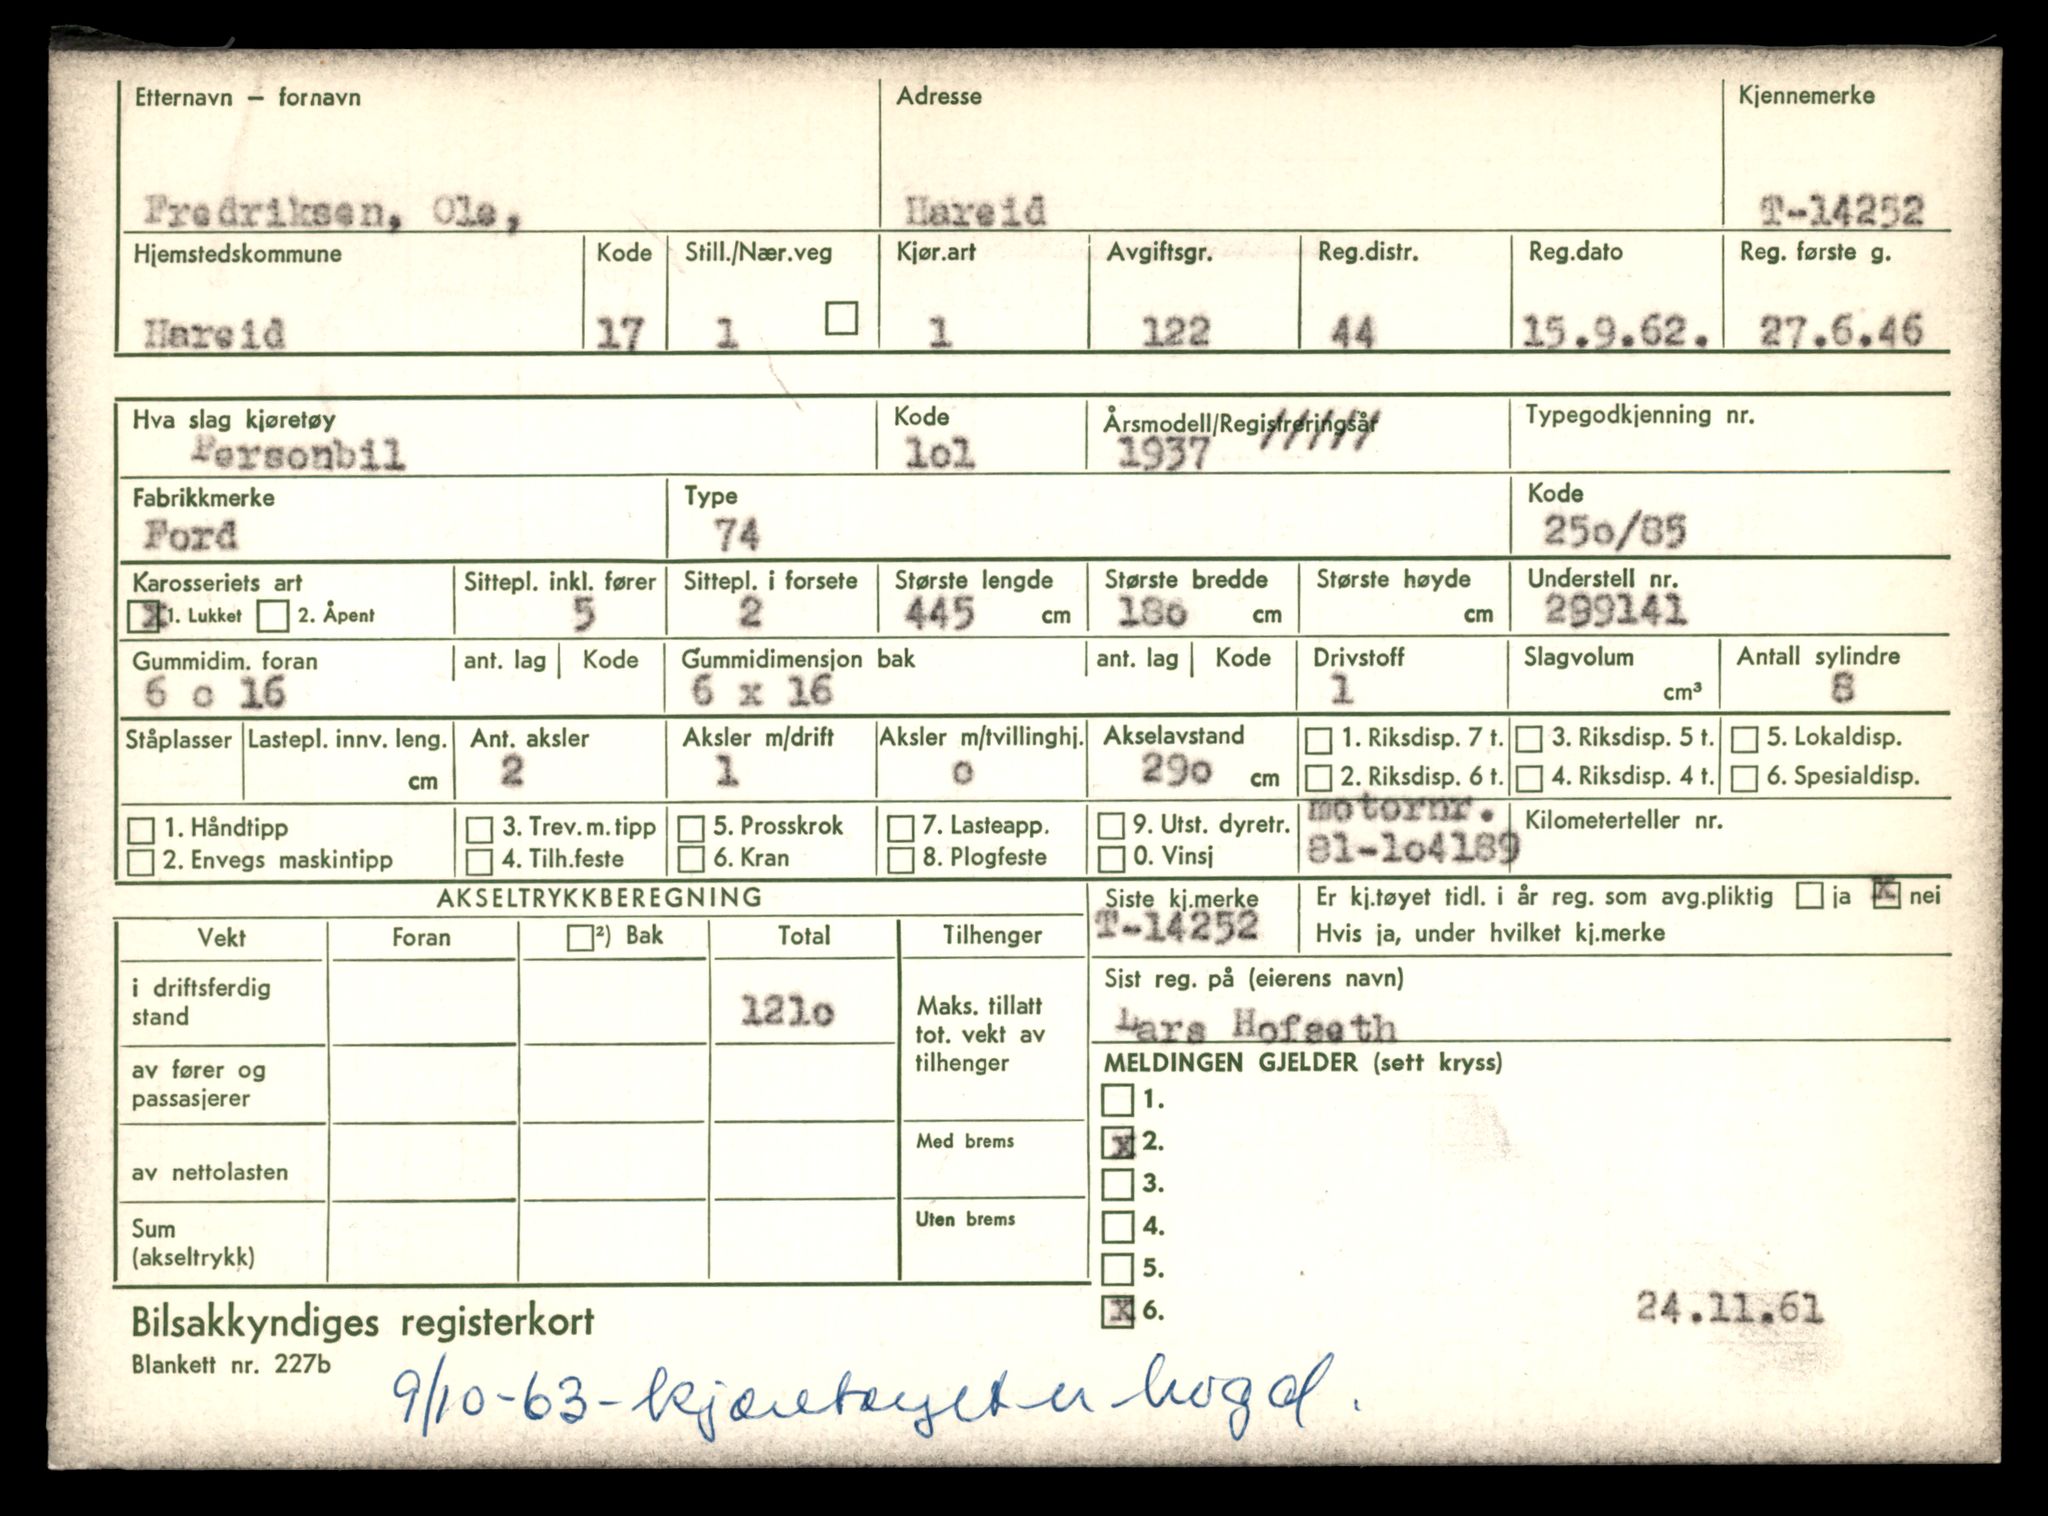 Etternavn – fornavn Adresse Kjennemerke
Fredriksen, Ole, Hareid T-14252
Hjemstedskommune Kode Still./Nær.veg Kjør.art Avgiftsgr. Reg.distr. Reg.dato Reg. første g.
Hareid 17 1 1 122 44 15.9.62. 27.6.46
Hva slag kjøretøy Kode Årsmodell/Registreringsår Typegodkjenning nr.
Personbil lol 1937 /////
Fabrikkmerke Type Kode
Ford 74 25o/85
Karosseriets art Sittepl. inkl. fører Sittepl. i forsete Største lengde Største bredde Største høyde Understell nr.
x 1. Lukket 2. Åpent 5 2 445 cm 18o cm cm 299141
Gummidim. foran ant. lag Kode Gummidimensjon bak ant. lag Kode Drivstoff Slagvolum Antall sylindre
6 o 16 6 x 16 1 cm³ 8
Ståplasser Lastepl. innv. leng. Ant. aksler Aksler m/drift Aksler m/tvillinghj. Akselavstand 1. Riksdisp. 7 t. 3. Riksdisp. 5 t. 5. Lokaldisp.
cm 2 1 o 29o cm 2. Riksdisp. 6 t. 4. Riksdisp. 4 t. 6. Spesialdisp.
1. Håndtipp 3. Trev.m.tipp 5. Prosskrok 7. Lasteapp. 9. Utst. dyretr. motornr. Kilometerteller nr.
2. Envegs maskintipp 4. Tilh.feste 6. Kran 8. Plogfeste 0. Vinsj 81-1o4189
AKSELTRYKKBEREGNING Siste kj.merke Er kj.tøyet tidl. i år reg. som avg.pliktig ja x nei
T-14252 Hvis ja, under hvilket kj.merke
Vekt Foran ²) Bak Total Tilhenger
Sist reg. på (eierens navn)
Lars Hofseth
i driftsferdig
stand 121o
Maks. tillatt
tot. vekt av
tilhenger
MELDINGEN GJELDER (sett kryss)
av fører og
passasjerer
1.
Med brems x 2.
av nettolasten 3.
Uten brems 4.
Sum
(akseltrykk) 5.
x 6. 24.11.61
Bilsakkyndiges registerkort
Blankett nr. 227b
9/10-63 - kjøretøyet er hogd.